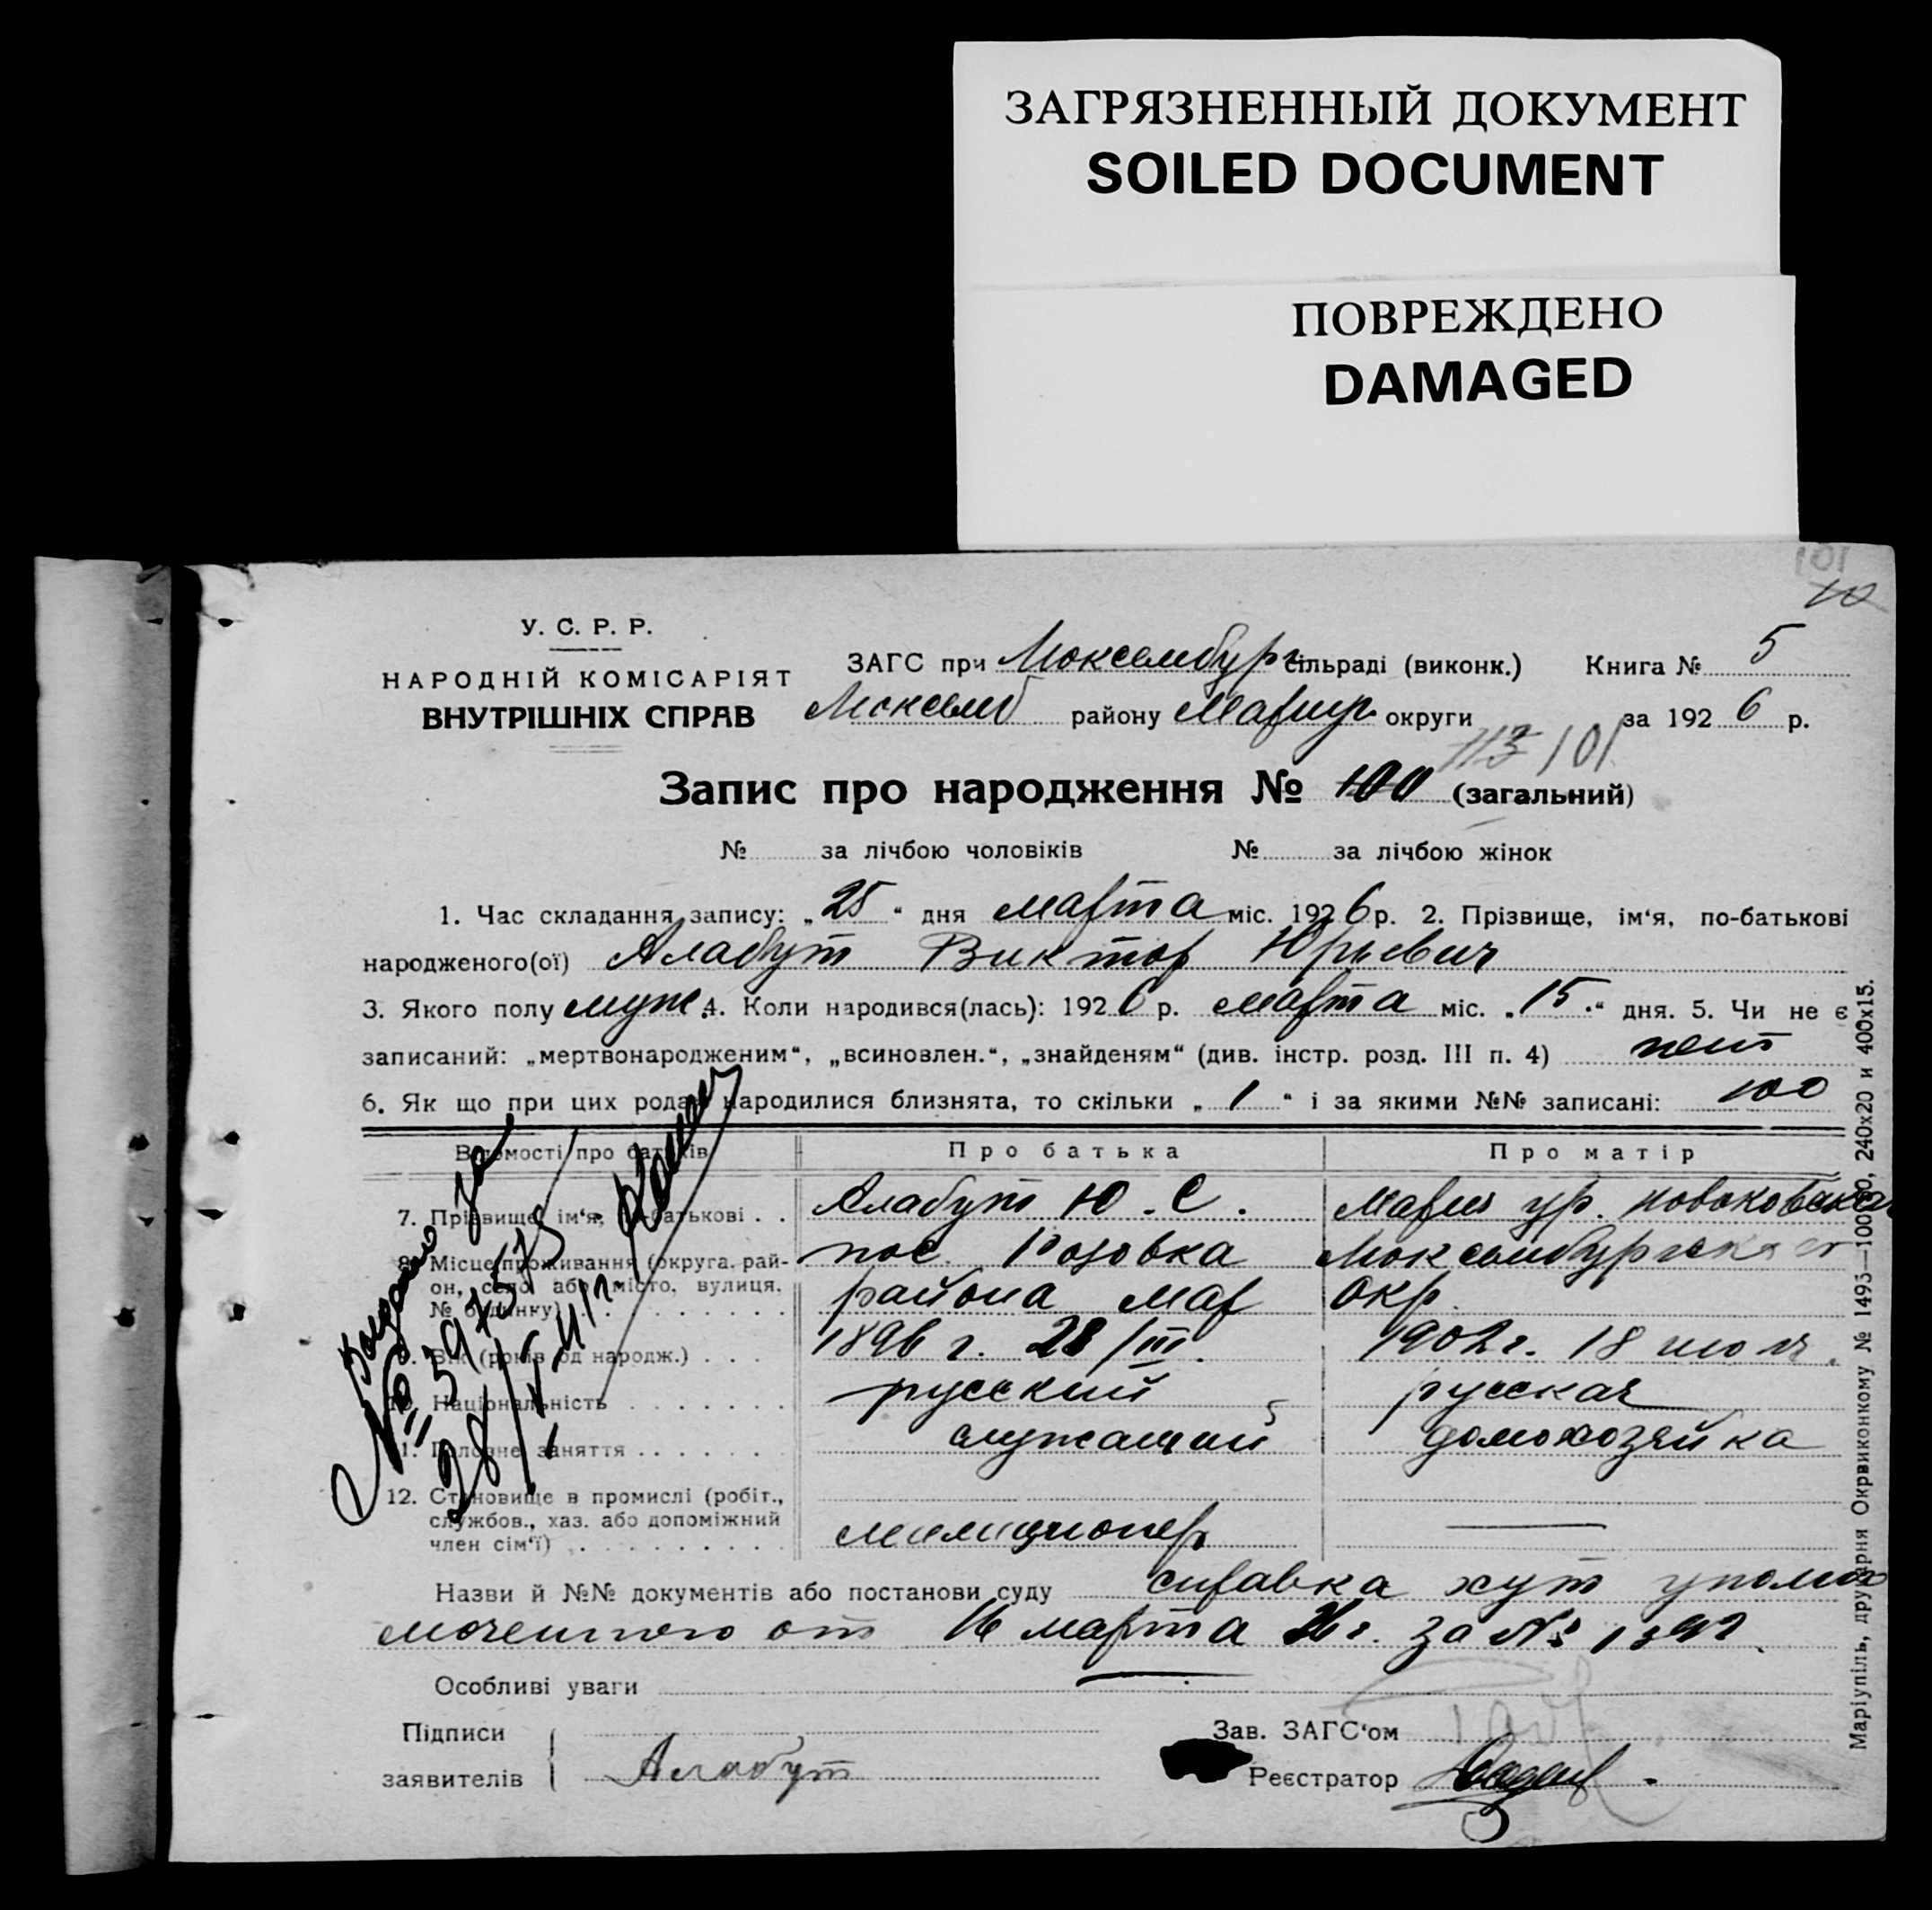 ЗАГРЯЗНЕННЫЙ ДОКУМЕНТ
SOILED DOCUMENT
ПОВРЕЖДЕНО
DAMAGED
101
У. С. Р. Р.
НАРОДНІЙ КОМІСАРІЯТ
ВНУТРІШНІХ СПРАВ
ЗАГС при Люксембург сільраді (виконк.) Книга № 5
Люксемб району Мариуп округи за 1926 р.
113 101
Запис про народження № 100 (загальний)
№ за лічбою чоловіків № за лічбою жінок
1. Час складання запису: „25“ дня марта міс. 1926 р. 2. Прізвище, ім‘я, по-батькові
народженого(ої) Алабут Виктор Юрьевич
3. Якого полу муж. 4. Коли народився(лась): 1926 р. марта міс. „15.“ дня. 5. Чи не є
записаний: „мертвонародженим“, „всиновлен.“, „знайденям“ (див. інстр. розд. III п. 4) нет
6. Як що при цих родах народилися близнята, то скільки „1“ і за якими №№ записані: 100
Відомості про батьків Про батька Про матір
7. Прізвище, ім‘я, по-батькові . . Алабут Ю. С. Мария ур.
8. Місце проживання (округа, рай- пос. Розовка Люксембургска
он, село або місто, вулиця, района Мар окр.
№ будинку)
9. Вік (років од народж.) . . . 1896 г. 28/III. 1902 г. 18
10. Національність русский русская
11. Головне заняття служащий домохозяйка
12. Становище в промислі (робіт.,
службов., хаз. або допоміжний милиционер
член сім‘ї)
Выдано
№ 28/
Назви й №№ документів або постанови суду справка хут уполно
моченного от 16 марта 26 г. за №
Особливі уваги
Підписи Зав. ЗАГС‘ом
заявителів Алабут Реєстратор
Маріупіль, друкарня Окрвиконкому № 1495—100000, 240x20 и 400x15.